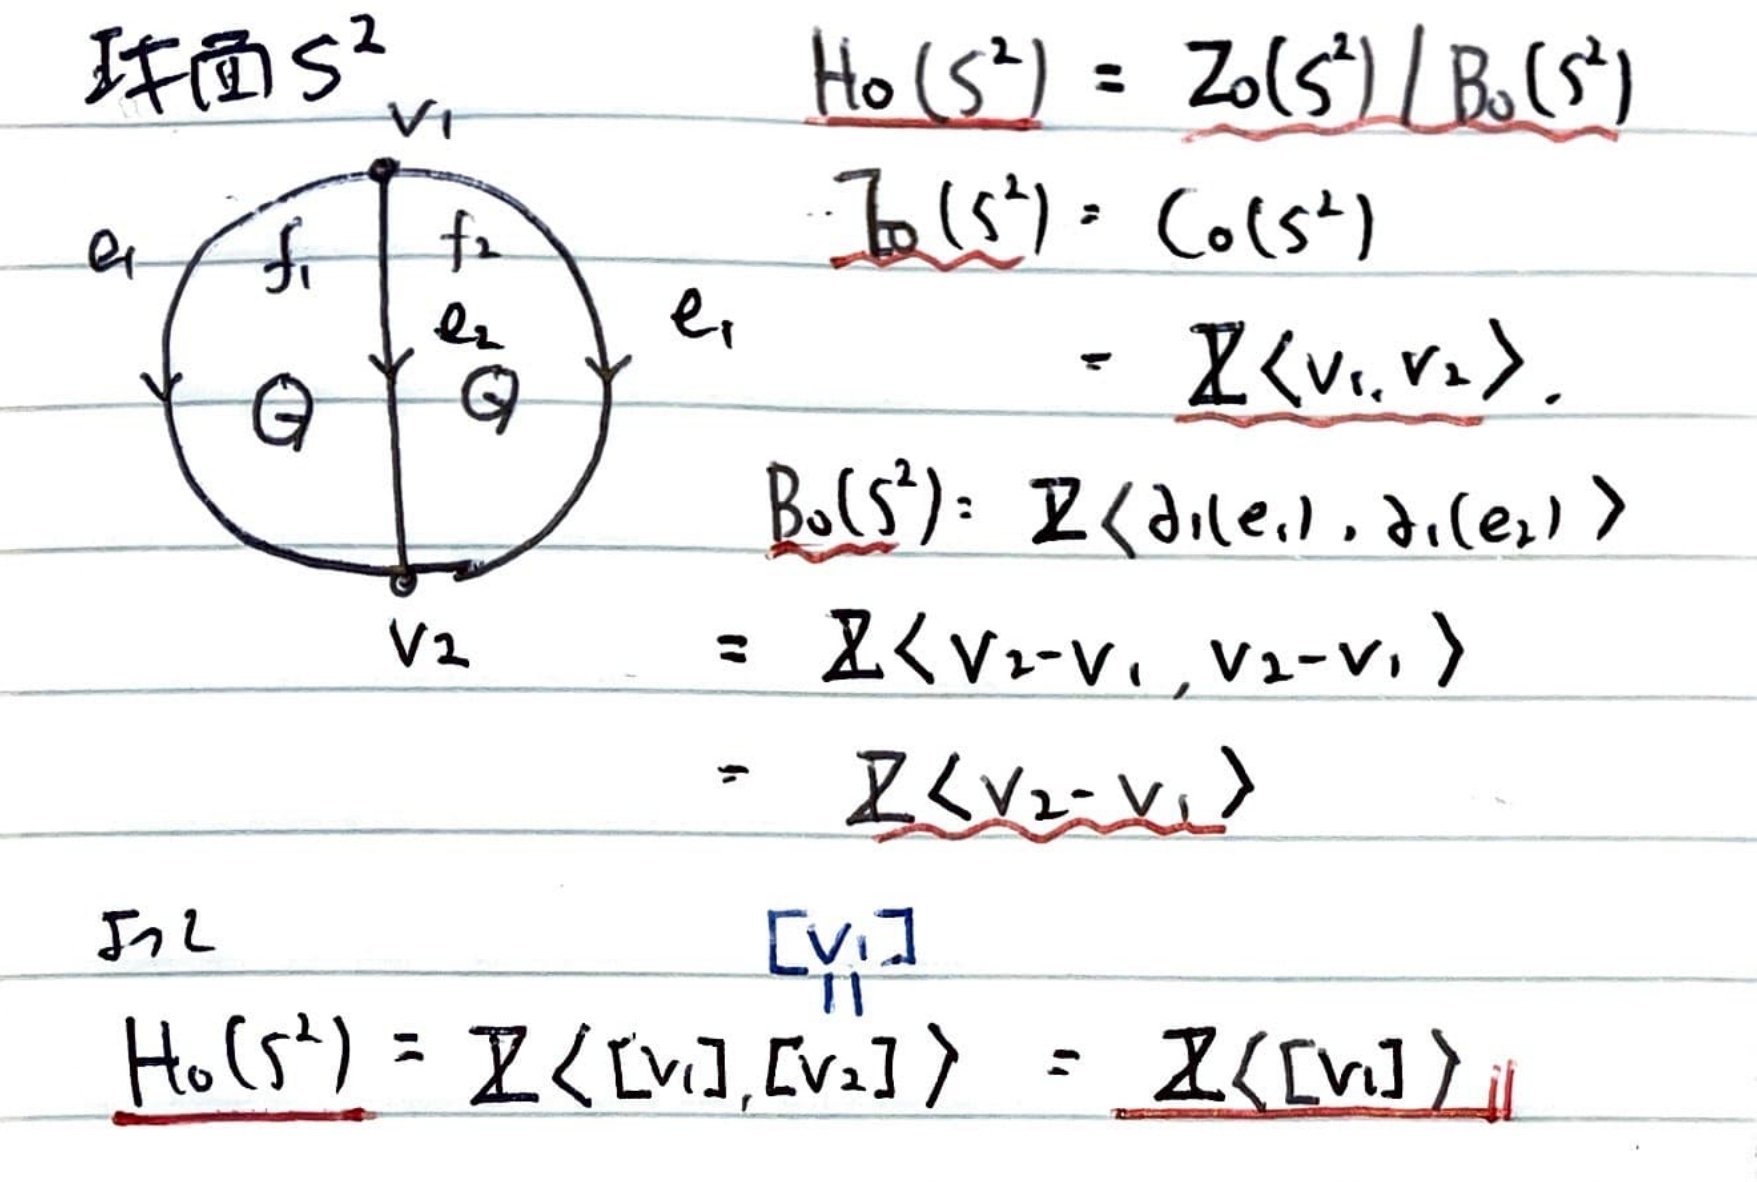 球面 S²
V₁
e₁
f₁
f₂
e₂
e₁
V₂
H₀(S²) = Z₀(S²) / B₀(S²)
Z₀(S²) = C₀(S²)
= ℤ⟨V₁, V₂⟩.
B₀(S²) = ℤ⟨∂₁(e₁), ∂₁(e₂)⟩
= ℤ⟨V₂-V₁, V₂-V₁⟩
= ℤ⟨V₂-V₁⟩
[V₁]
||
H₀(S²) = ℤ⟨[V₁], [V₂]⟩ = ℤ⟨[V₁]⟩